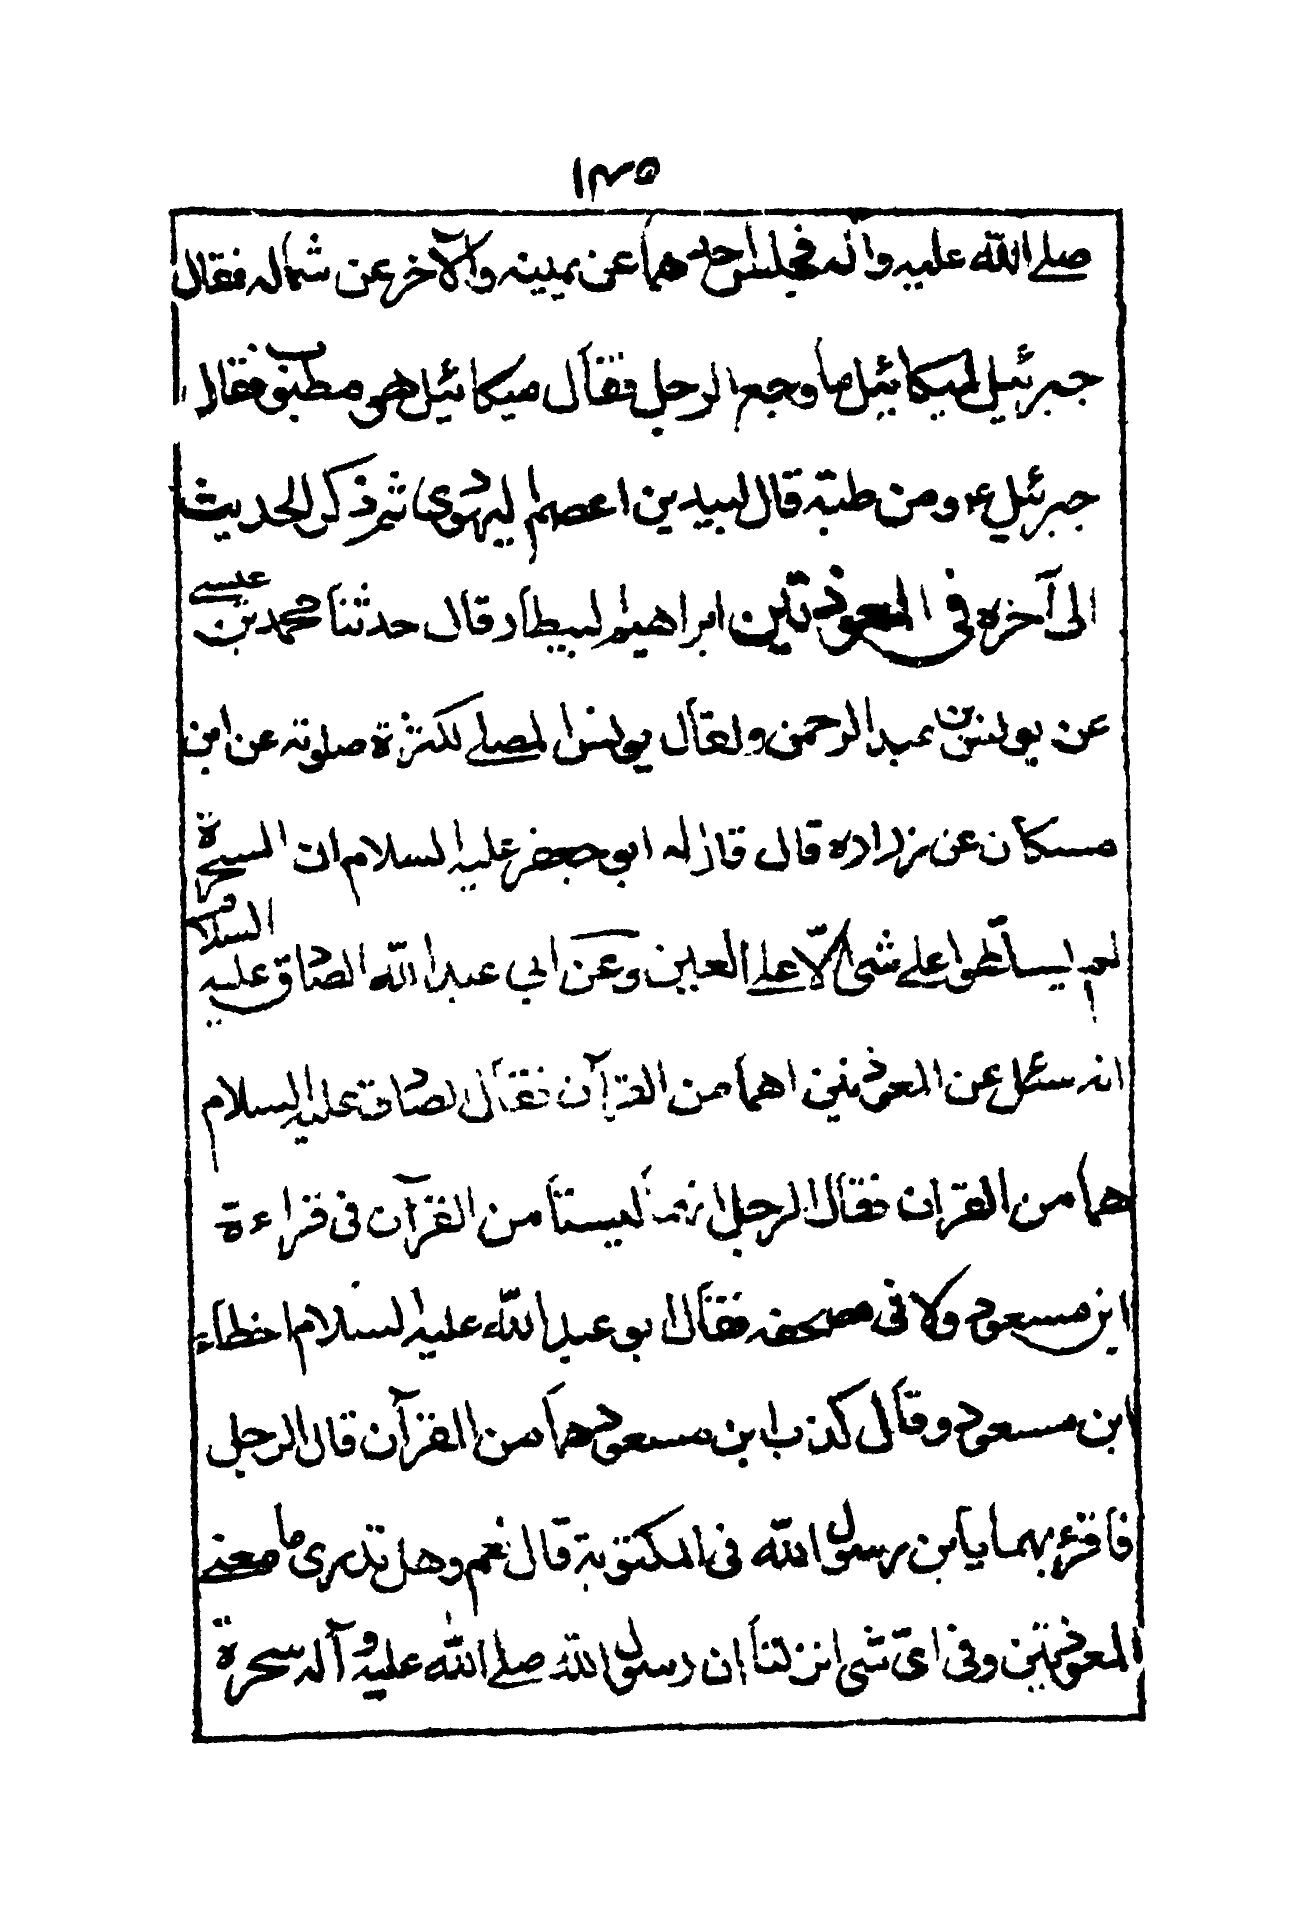 ١٣٥
صلے الله عليه وآله فجلس احدهما عن يمينه والآخر عن شماله فقال
جبرئيل لميكائيل ما وجع الرجل فقال ميكائيل هو مطبوب فقال
جبرئيل ع ومن طبه قال لبيد بن اعصم اليهودى ثم ذكر الحديث
الى آخره في المعوذتين ابراهيم البيطار قال حدثنا محمد بن عيسے
عن يونس بن عبد الرحمن ولقال يونس المصلے لكثرة صلوته عن ابن
مسكان عن زراره قال قال له ابو جعفر عليه السلام ان السحرة
لم يسلطوا علے شى الا علے العين وعن ابي عبد الله الصادق عليه السلام
انه سئل عن المعوذتين اهما من القرآن فقال الصادق عليه السلام
هما من القران فقال الرجل انهما ليستا من القرآن فى قراءة
ابن مسعود ولا فى مصحفه فقال ابو عبد الله عليه السلام اخطاء
ابن مسعود وقال كذب ابن مسعود هما من القرآن قال الرجل
فاقرء بهما يا بن رسول الله فى المكتوبة قال نعم وهل تدرى ما معنے
المعوذتين وفى اى شى انزلتا ان رسول الله صلے الله عليه وآله سحرة